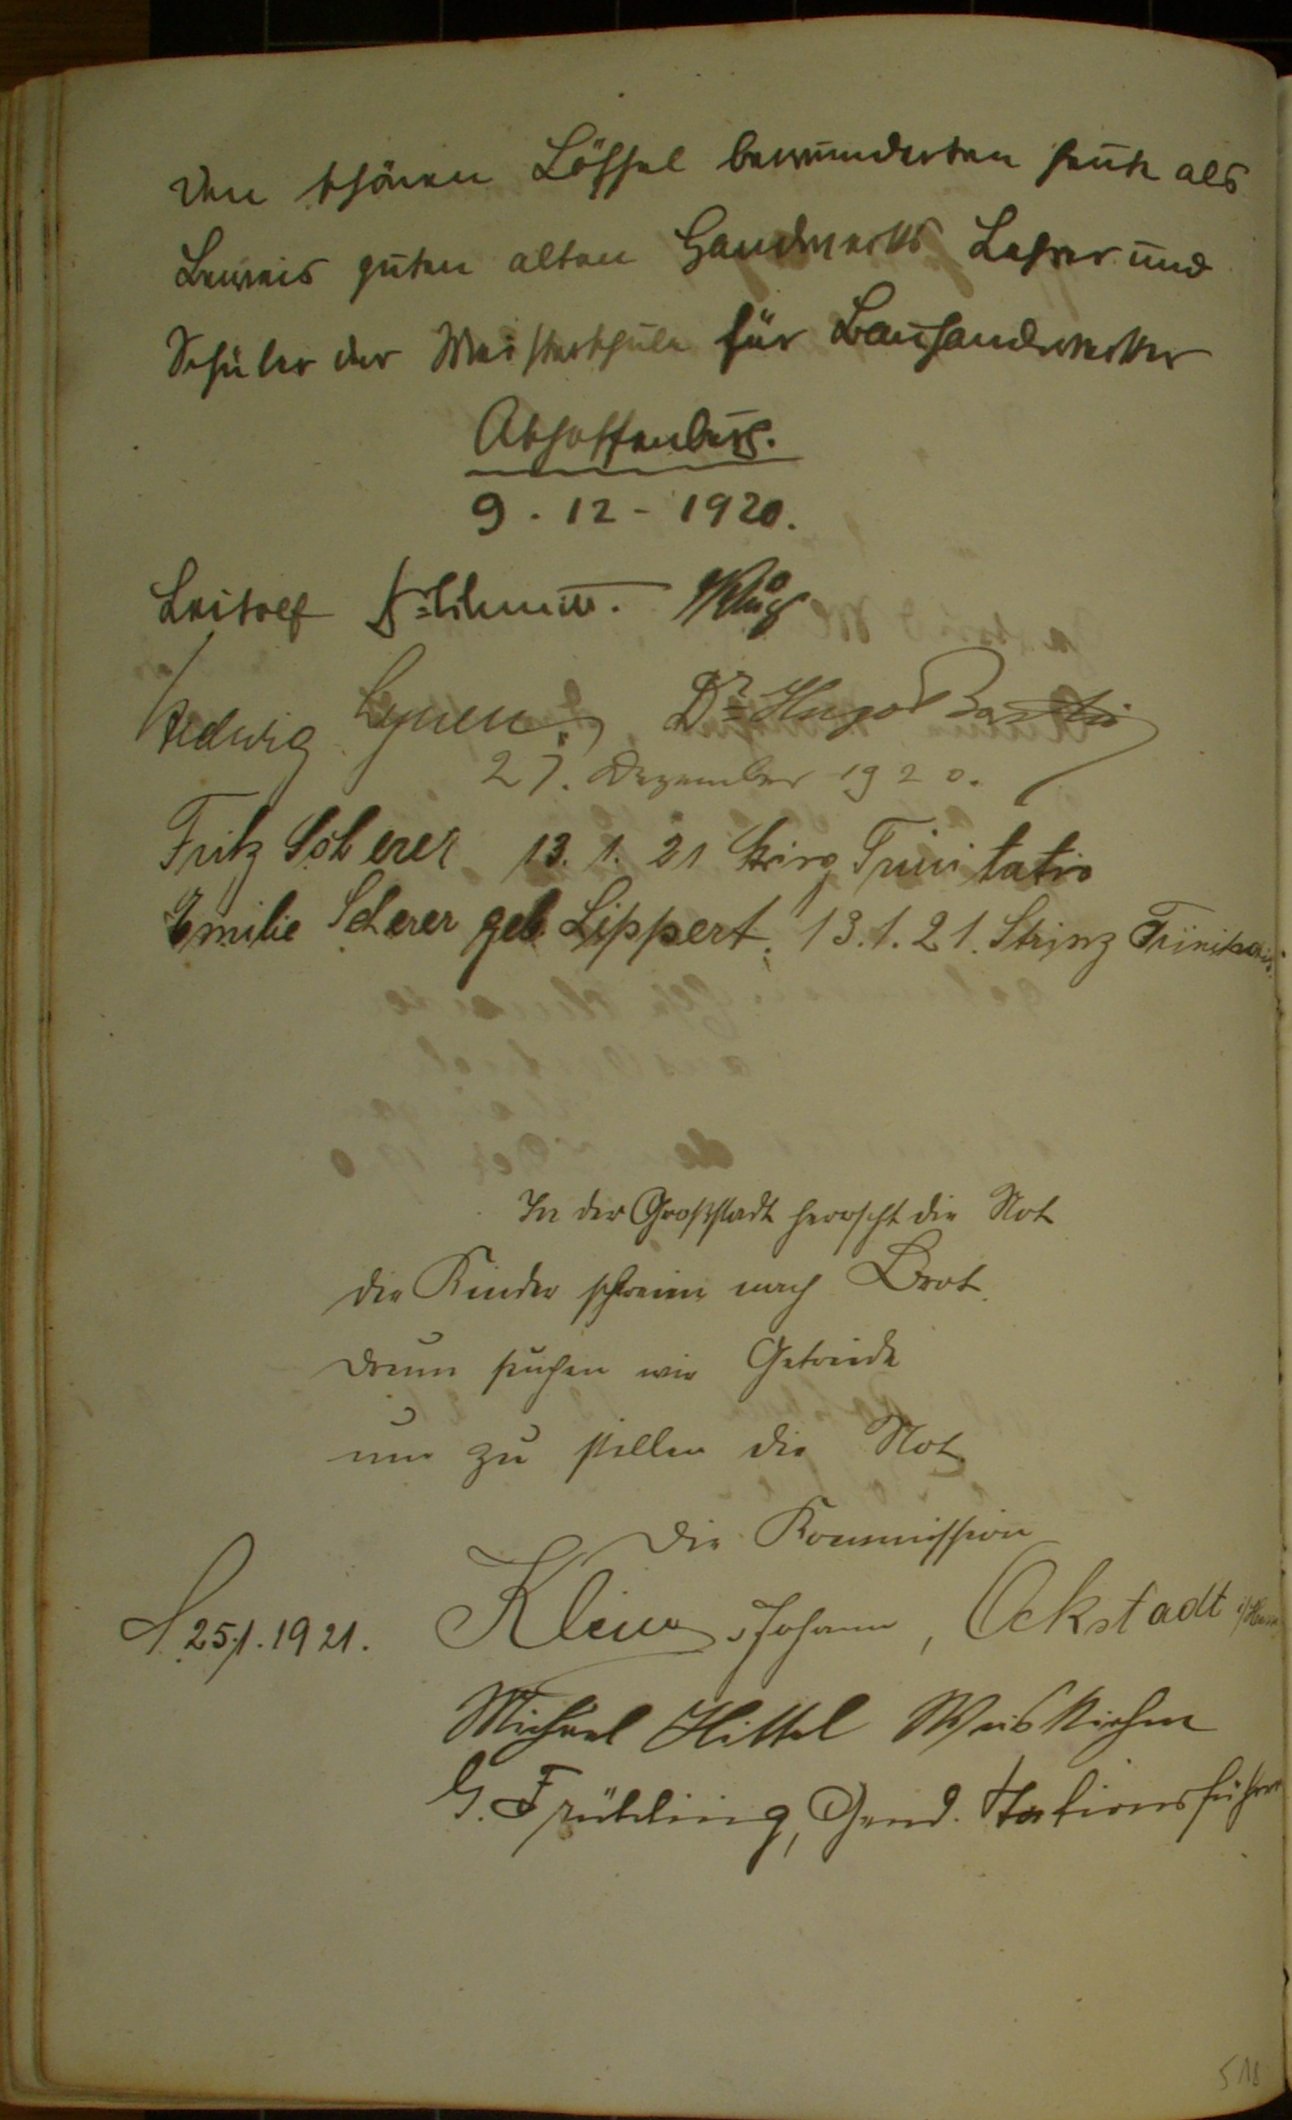 Den schönen Löffel bewunderten heute als
Beweis guten alten Handwerks Lehrer und
Schüler der Meisterschule für Bauhandwerker
Aschaffenburg.
9. 12 - 1920.
Leitolf Klug
Hedwig Dr Hugo
27. Dezember 1920.
Fritz Scherer 13. 1. 21 Trinitatis
Emilie Scherer geb Lippert. 13. 1. 21. Strinz Trinitatis.
In der Großstadt herrscht die Not
die Kinder schreien nach Brot.
drum suchen wir Getreide
um zu stillen die Not.
Die Kommission
25/1. 1921. Klein Johann, Ockstadt
Michael Hittel Weiskirchen
G. Frühling, Gend. Stationsführer
518